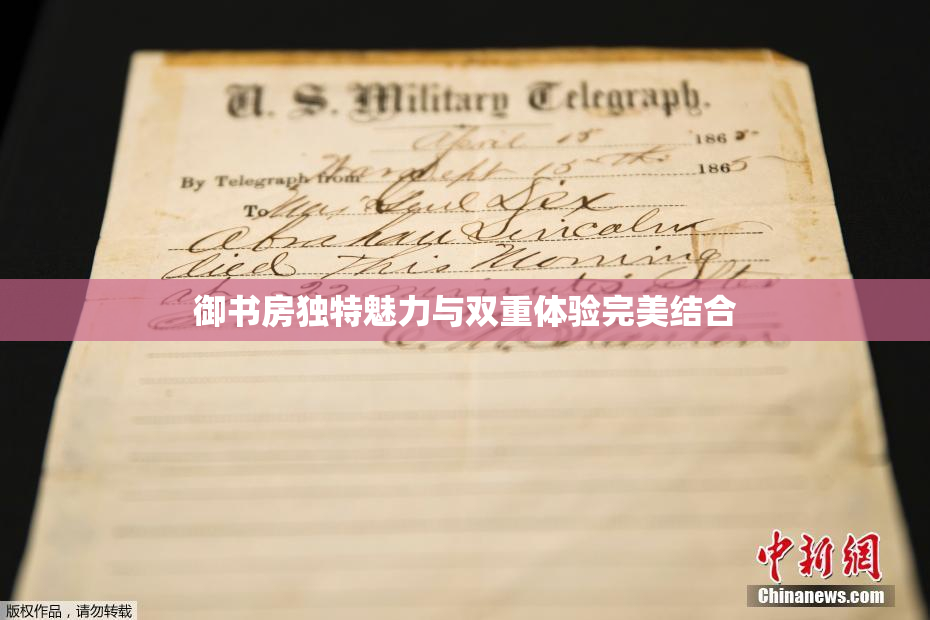 U. S. Military Telegraph.
April 15 1865
By Telegraph from War Dept 15th 1865
To Maj Genl Dix
Abraham Lincoln
died This Morning
at 22 minutes after
御书房独特魅力与双重体验完美结合
E. M. Stanton
中新网
Chinanews.com
版权作品，请勿转载